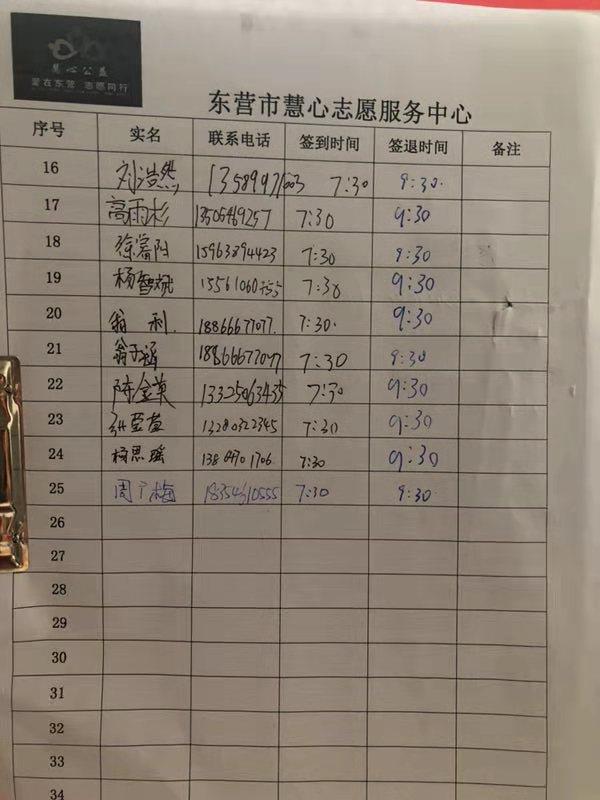 慧心公益
爱在东营 志愿同行
东营市慧心志愿服务中心
序号 实名 联系电话 签到时间 签退时间 备注
16 刘浩然 13589971603 7:30 9:30
17 高雨杉 13505469257 7:30 9:30
18 徐富阳 15963894423 7:30 9:30
19 杨智斌 15561060755 7:30 9:30
20 翁利 18866677077 7:30 9:30
21 翁子涵 18866677077 7:30 9:30
22 陈金英 13325063435 7:30 9:30
23 13280322345 7:30 9:30
24 杨思瑶 7:30 9:30
25 周广梅 18354610555 7:30 9:30
26
27
28
29
30
31
32
33
34